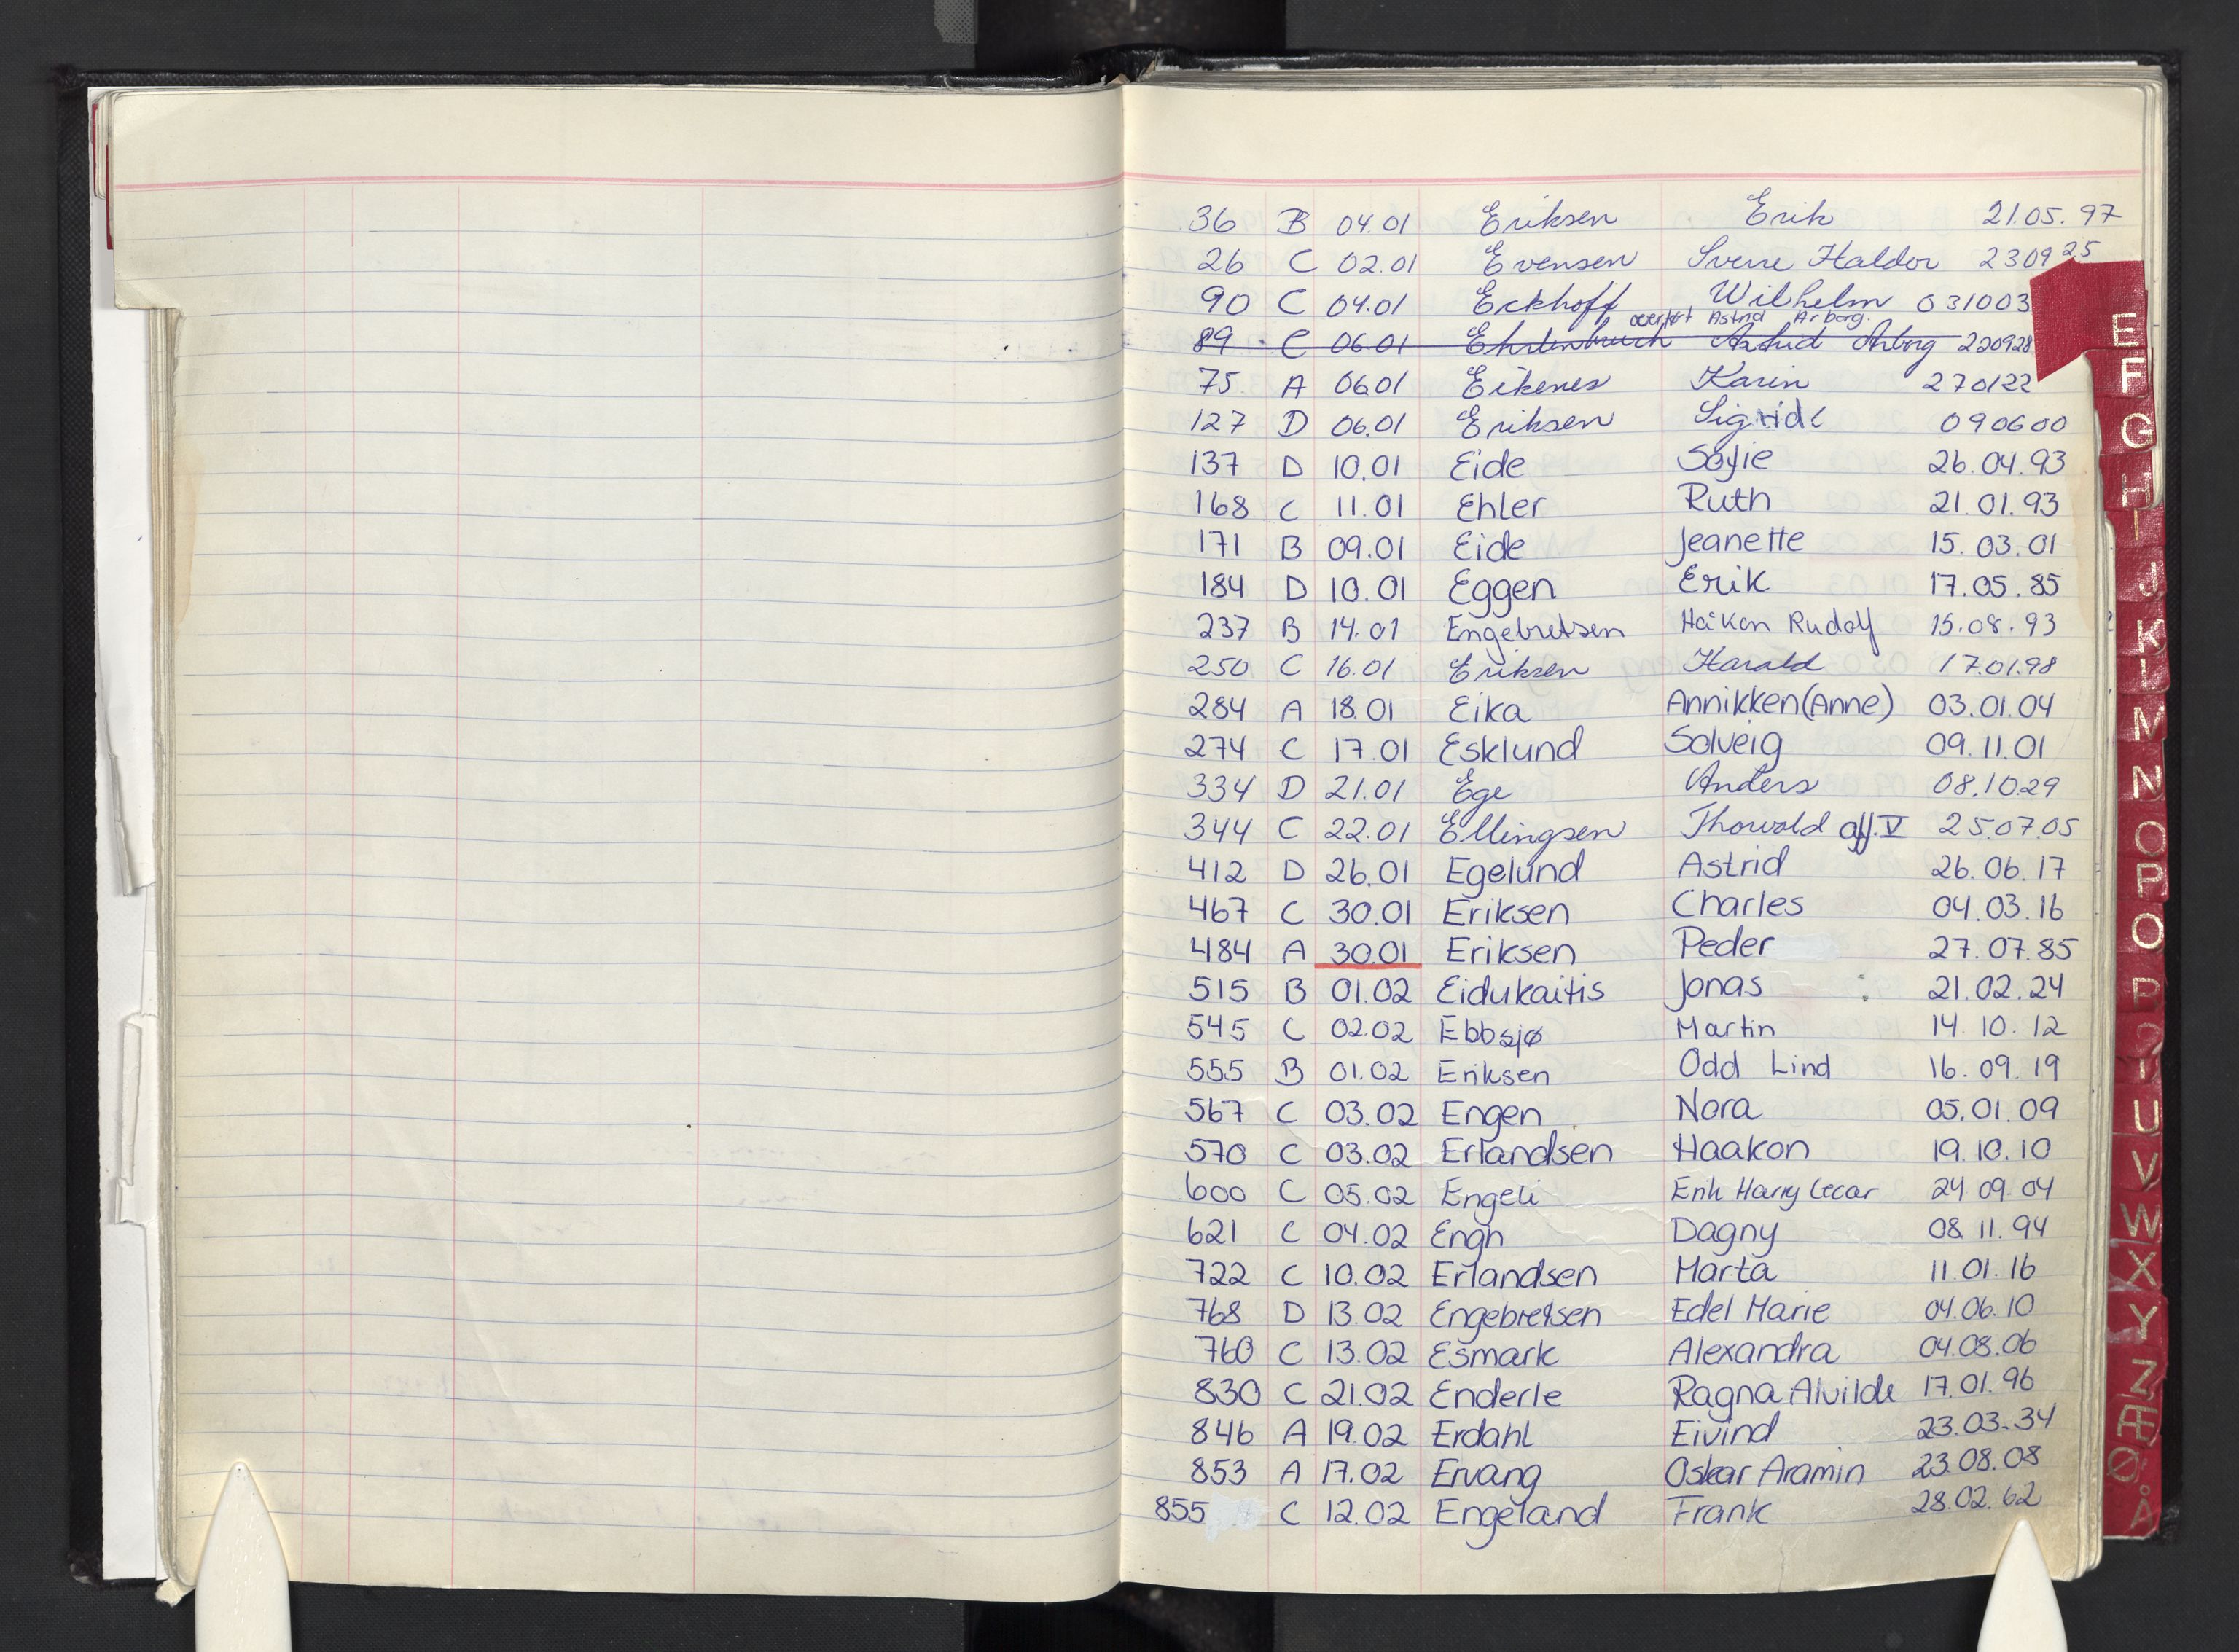 36 B 04.01 Eriksen Erik 21.05.97
26 C 02.01 Evensen Sverre Haldor 230925
90 C 04.01 Eckhoff Wilhelm 031003
overført Astrid Arborg.
89 C 06.01 Astrid 220928
75 A 06.01 Eikenes Karin 270122
127 D 06.01 Eriksen Sigrid 090600
137 D 10.01 Eide Sofie 26.04.93
168 C 11.01 Ehler Ruth 21.01.93
171 B 09.01 Eide Jeanette 15.03.01
184 D 10.01 Eggen Erik 17.05.85
237 B 14.01 Engebretsen Håkon Rudolf 15.08.93
250 C 16.01 Eriksen Harald 17.01.98
284 A 18.01 Eika Annikken(Anne) 03.01.04
274 C 17.01 Esklund Solveig 09.11.01
334 D 21.01 Ege Anders 08.10.29
344 C 22.01 Ellingsen Thorvald aff. V 25.07.05
412 D 26.01 Egelund Astrid 26.06.17
467 C 30.01 Eriksen Charles 04.03.16
484 A 30.01 Eriksen Peder 27.07.85
515 B 01.02 Eidukaitis Jonas 21.02.24
545 C 02.02 Ebbsjø Martin 14.10.12
555 B 01.02 Eriksen Odd Lind 16.09.19
567 C 03.02 Engen Nora 05.01.09
570 C 03.02 Erlandsen Haakon 19.10.10
600 C 05.02 Engeli Erik Harry 24 09.04
621 C 04.02 Engh Dagny 08.11.94
722 C 10.02 Erlandsen Marta 11.01.16
768 D 13.02 Engebretsen Edel Marie 04.06.10
760 C 13.02 Esmark Alexandra 04.08.06
830 C 21.02 Enderle Ragna Alvilde 17.01.96
846 A 19.02 Erdahl Eivind 23.03.34
853 A 17.02 Ervang Oskar Aramin 23.08.08
855 C 12.02 Engeland Frank 28.02.62
E
F
G
H
I
J
K
L
M
N
O
P
O
P
U
V
W
X
Y
Z
Æ
Ø
Å